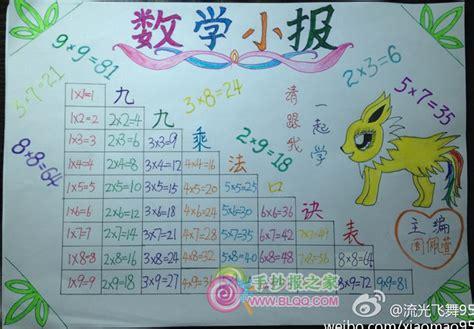 数学小报
9×9=81
3×7=21
8×8=64
3×8=24
2×9=18
2×3=6
5×7=35
请跟我
一起学
九九乘法口诀表
1×1=1
1×2=2 2×2=4
1×3=3 2×3=6 3×3=9
1×4=4 2×4=8 3×4=12 4×4=16
1×5=5 2×5=10 3×5=15 4×5=20 5×5=25
1×6=6 2×6=12 3×6=18 4×6=24 5×6=30 6×6=36
1×7=7 2×7=14 3×7=21 4×7=28 5×7=35 6×7=42 7×7=49
1×8=8 2×8=16 3×8=24 8×8=64
1×9=9 2×9=18 3×9=27 9×9=81
主编
手抄报之家
WWW.BLQQ.COM
@流光飞舞95
weibo.com/xiaomao95